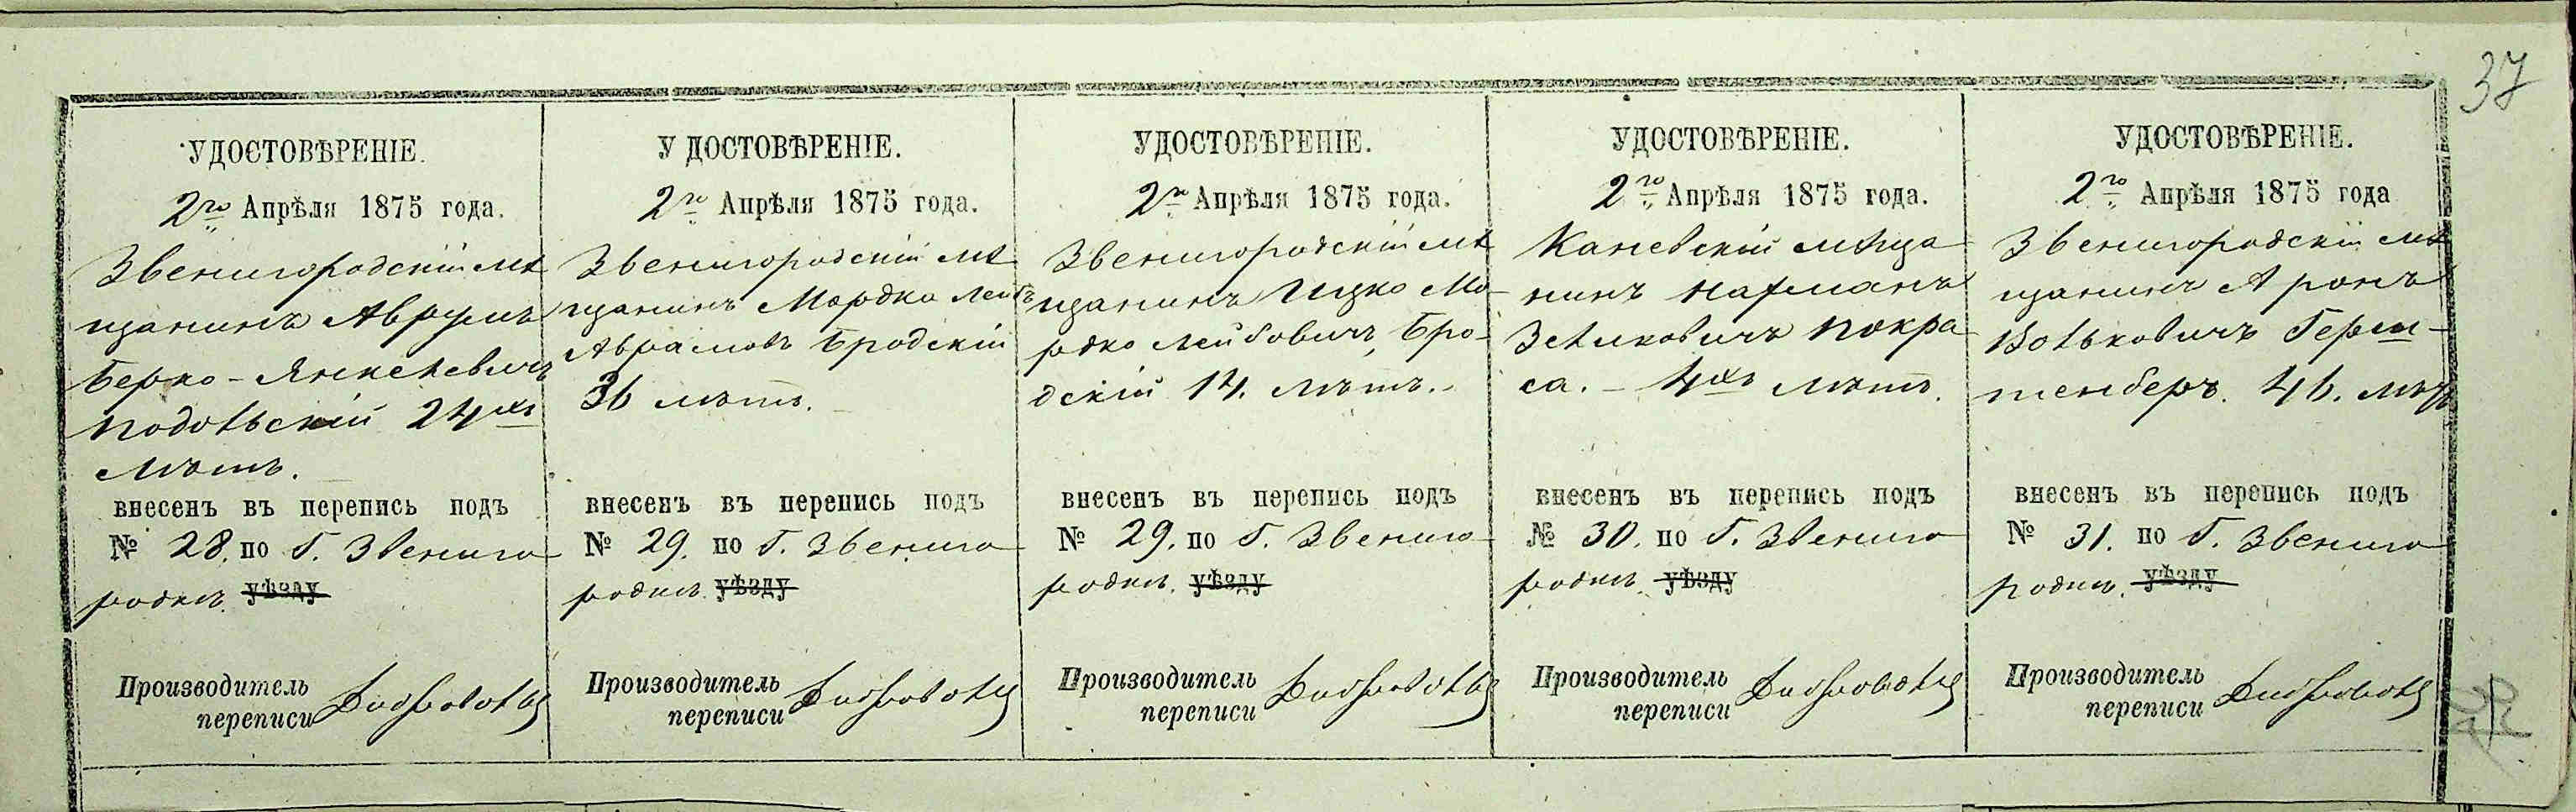 37
УДОСТОВѢРЕНІЕ.
2го Апрѣля 1875 года.
Звенигородскій мѣ
щанинъ Аврумъ
Берко-Янкелевичъ
Подольскій 24хъ
лѣтъ.
внесенъ въ перепись подъ
№ 28. по Г. Звениго
родкѣ. уѣзду
Производитель
переписи
УДОСТОВѢРЕНІЕ.
2го Апрѣля 1875 года.
Звенигородскій мѣ
щанинъ Мордко Лейбъ
Аврамовъ Бродскій
36 лѣтъ.
внесенъ въ перепись подъ
№ 29. по Г. Звениго
родкѣ. уѣзду
Производитель
переписи
УДОСТОВѢРЕНІЕ.
2го Апрѣля 1875 года.
Звенигородскій мѣ
щанинъ Ицко Мо-
рдко Лейбовичъ, Бро-
дскій 14. лѣтъ.
внесенъ въ перепись подъ
№ 29. по Г. Звениго
родкѣ. уѣзду
Производитель
переписи
УДОСТОВѢРЕНІЕ.
2го Апрѣля 1875 года.
Каневскій мѣща
нинъ Нахманъ
Зельковичъ Покра
са. - 4хъ лѣтъ.
внесенъ въ перепись подъ
№ 30. по Г. Звениго
родкѣ. уѣзду
Производитель
переписи
УДОСТОВѢРЕНІЕ.
2го Апрѣля 1875 года
Звенигородскій мѣ
щанинъ Аронъ
Вольковичъ Герш-
тенберъ. 46. лѣтъ
внесенъ въ перепись подъ
№ 31. по Г. Звениго
родкѣ. уѣзду
Производитель
переписи